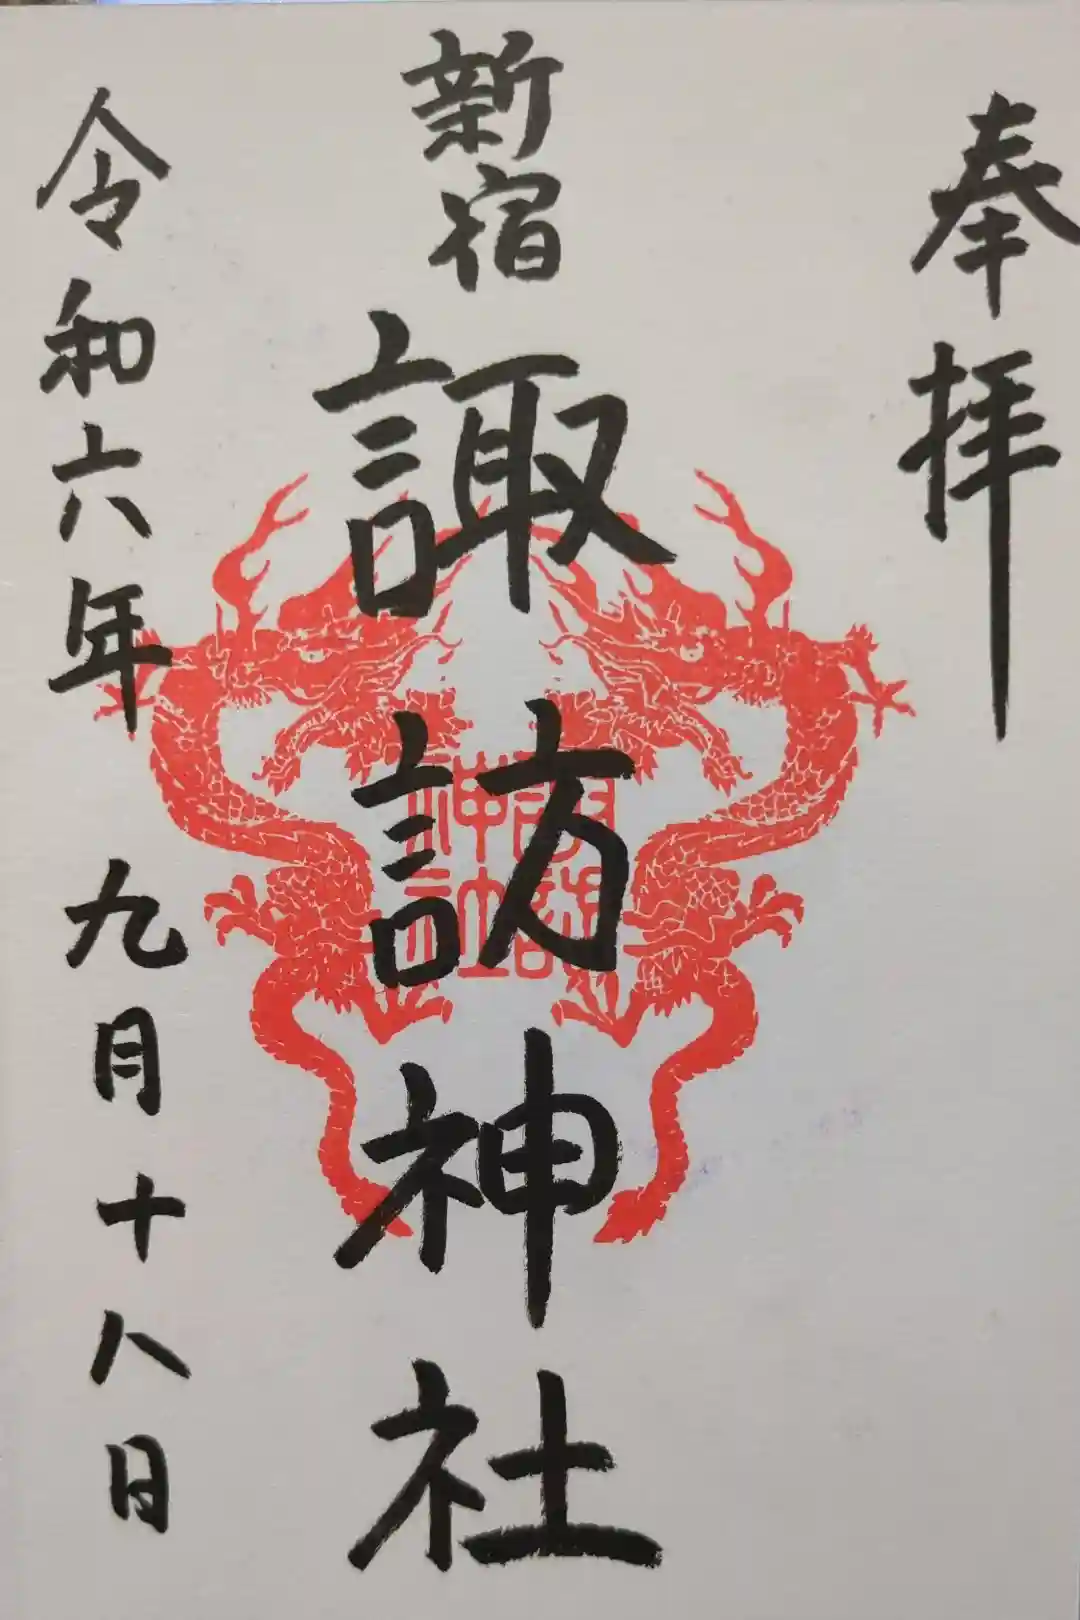 奉拝
新宿
諏訪神社
諏訪
神社
令和六年 九月十八日